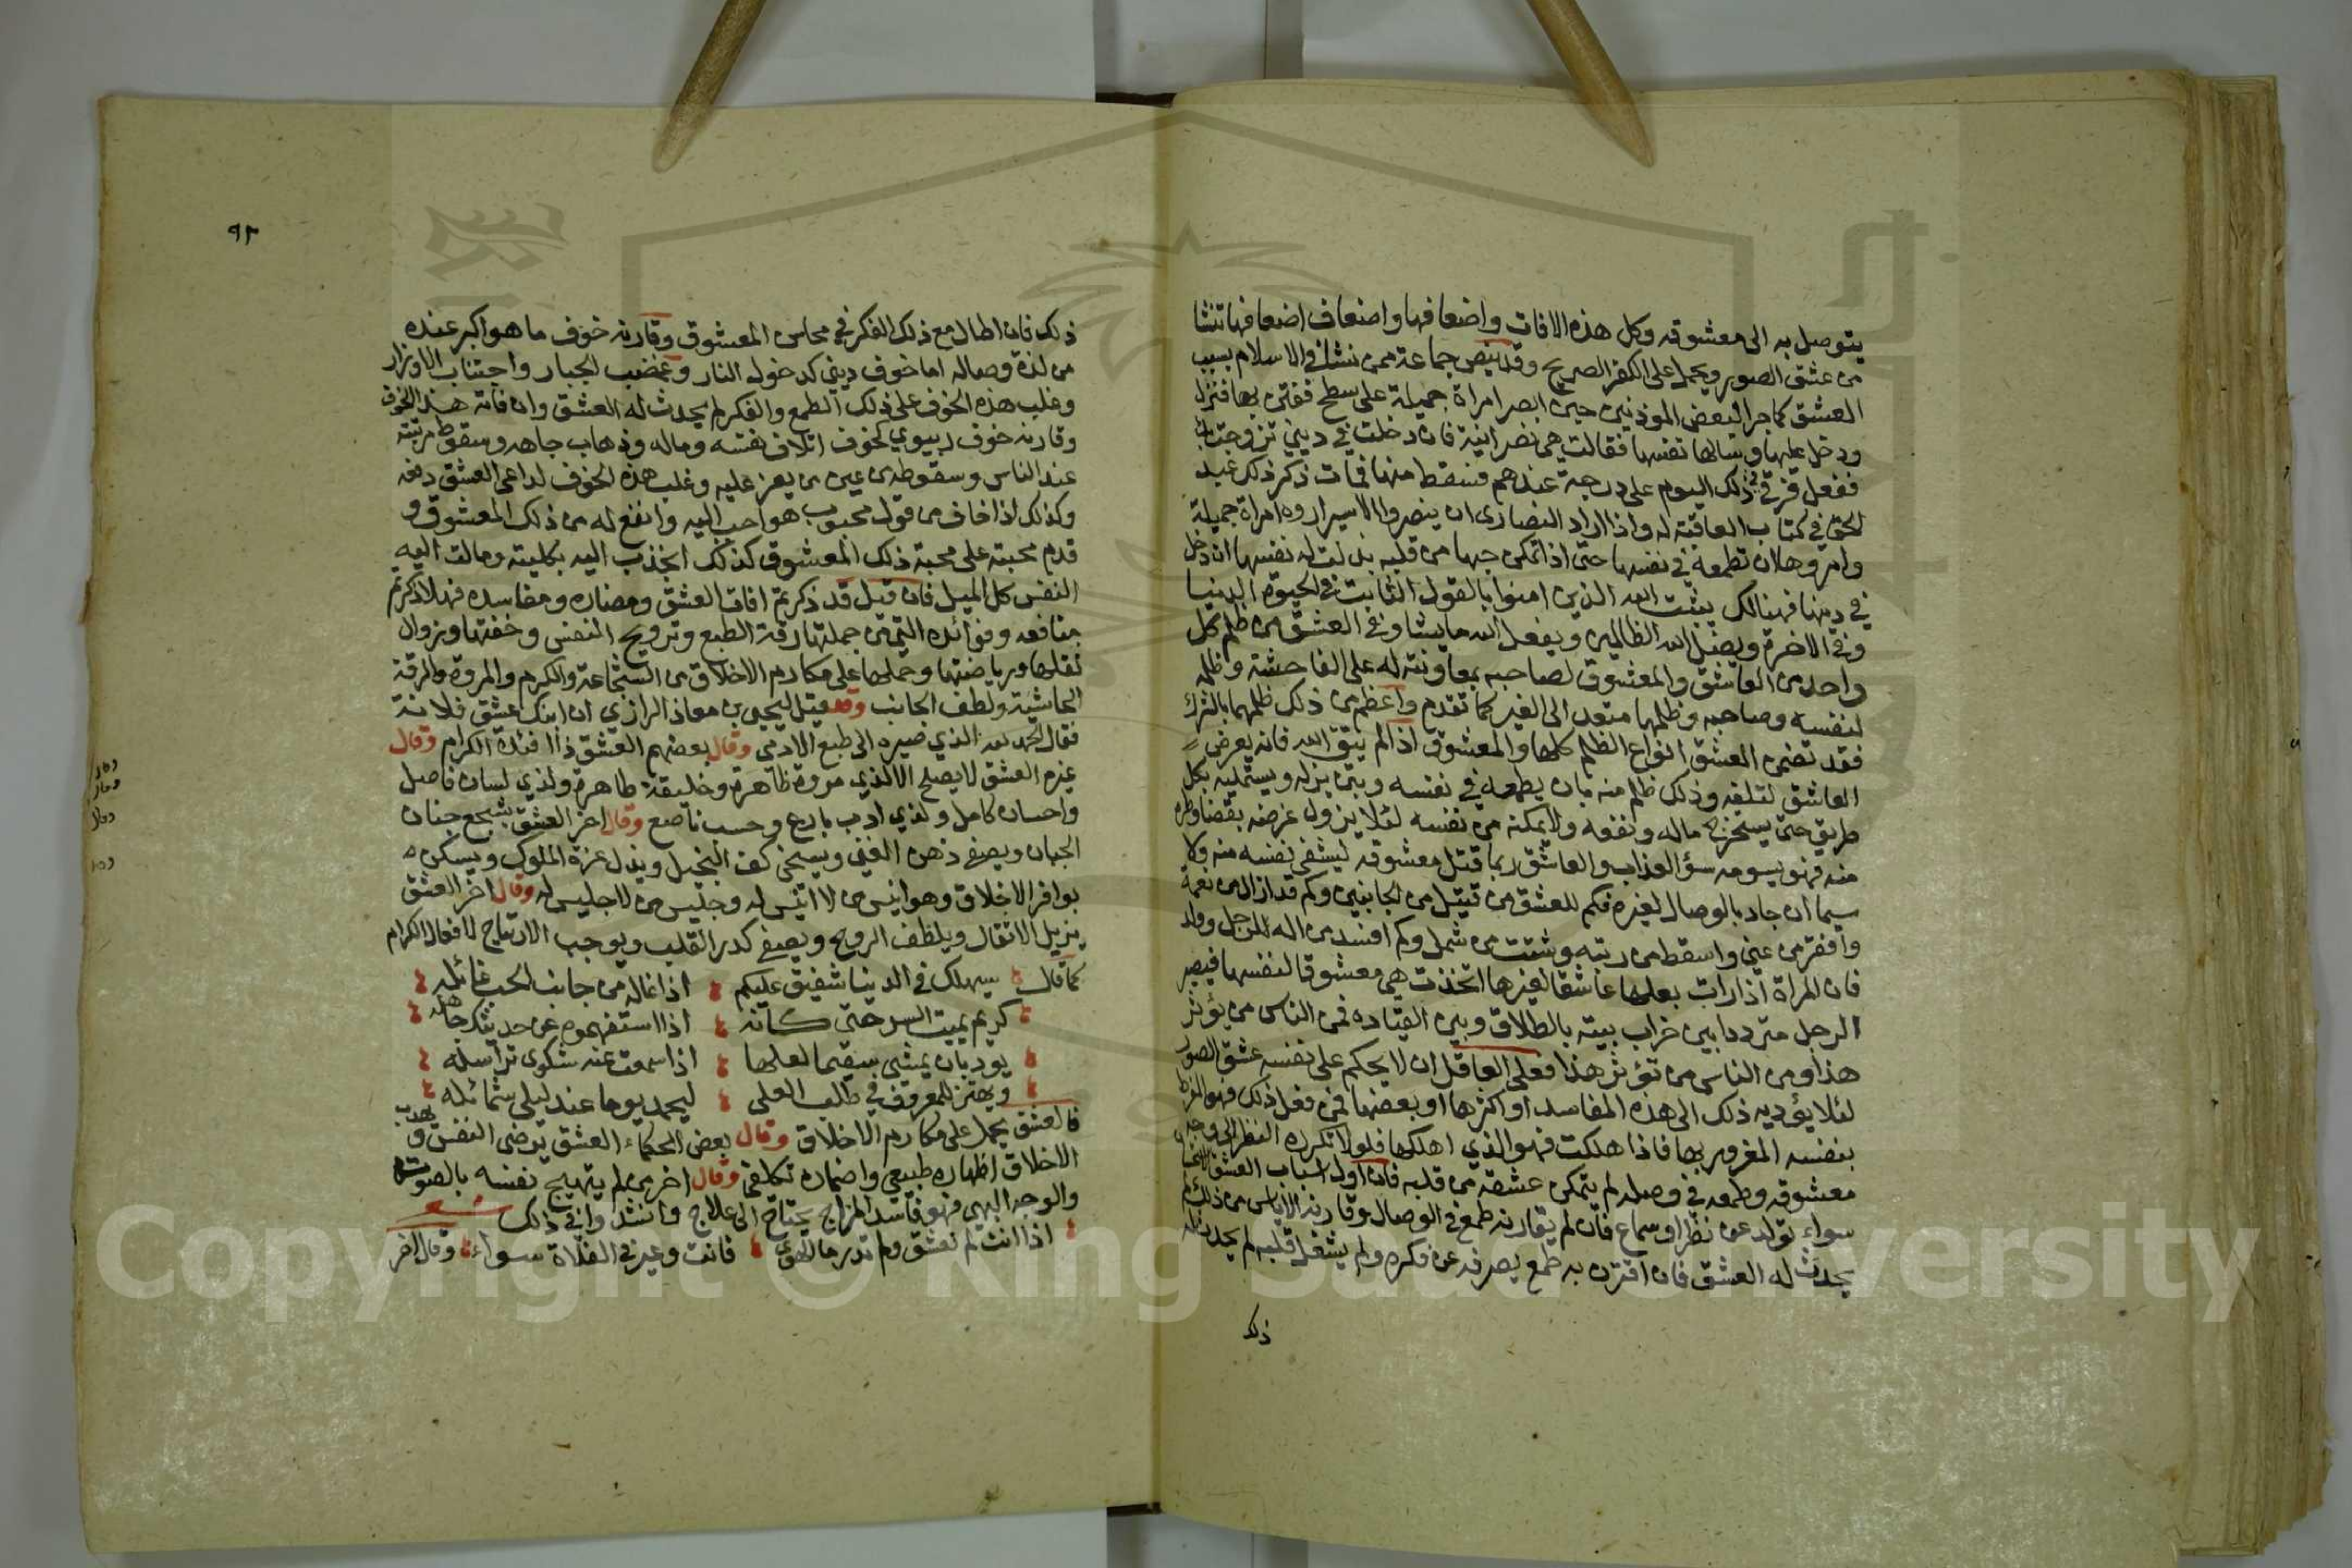 يتوصل به الى معشوقه وكل هذه الافات واضعافها واضعاف اضعافها تنشا
من عشق الصور ويحمل على الكفر الصريح وقد ينص جماعة ممن نشا في الاسلام بسبب
العشق كما جرا لبعض الموذنين حين ابصر امراة جميلة على سطح ففتن بها فنزل
ودخل عليها وسالها نفسها فقالت هي نصرانية فان دخلت في ديني تزوجت بك
ففعل فرقي في ذلك اليوم على درجة عندهم فسقط منها فمات ذكر ذلك عبد
الحق في كتاب العاقبة له واذا اراد النصارى ان ينصروا الاسير اروه امراة جميلة
وامروها ان تطمعه في نفسها حتى اذا تمكن حبها من قلبه بذلت له نفسها ان دخل
في دينها فهنالك يثبت الله الذين امنوا بالقول الثابت في الحيوة الدنيا
وفي الاخرة ويضل الله الظالمين ويفعل الله ما يشا وفي العشق من ظلم كل
واحد من العاشق والمعشوق لصاحبه بمعاونته له على الفاحشة وظلمه
لنفسه وصاحبه وظلمها متعد الى الغير كما تقدم واعظم من ذلك ظلمهما بالشرك
فقد تضمن العشق انواع الظلم كلها والمعشوق اذا لم يتق الله فانه يعرض
العاشق لتلفه وذلك ظلم منه بان يطمعه في نفسه ويتزين له ويستميله بكل
طريق حتى يستخرج ماله ونفعه ولا يمكنه من نفسه لئلا يزول غرضه بقضا وطره
منه فهو يسومه سؤ العذاب والعاشق ربما قتل معشوقه ليشفي نفسه منه ولا
سيما ان جاد بالوصال لغيره فكم للعشق من قتيل من الجانبين وكم قد ازال من نعمة
وافقر من غني واسقط من رتبه وشتت من شمل وكم افسد من اهل للرجل وولد
فان المراة اذا رات بعلها عاشقا لغيرها اتخذت هي معشوقا لنفسها فيصير
الرجل مترددا بين خراب بيته بالطلاق وبين القياده فمن الناس من يؤثر
هذا ومن الناس من تؤثر هذا فعلى العاقل ان لا يحكم على نفسه عشق الصور
لئلا يؤديه ذلك الى هذه المفاسد او اكثرها او بعضها فمن فعل ذلك فهو المفرط
بنفسه المغرور بها فاذا هلكت فهو الذي اهلكها فلولا تكراره النظر الى وجه
معشوقه وطمعه في وصله لم يتمكن عشقه من قلبه فان اول اسباب العشق الاستحسان
سواء تولد عن نظر او سماع فان لم يقارنه طمع في الوصال وقارنه الاياس من ذلك لم
يحدث له العشق فان اقترن به طمع يصرفه عن فكره ولم يشغل قلبه لم يحدث له
ذلك
٩٢
ذلك فان اطال مع ذلك الفكر في محاسن المعشوق وقارنه خوف ما هو اكبر عنده
من لذة وصاله اما خوف ديني كدخول النار وغضب الجبار واجتناب الاوزار
وغلب هذه الخوف على ذلك الطمع والفكر لم يحدث له العشق وان فاته هذا الخوف
وقارنه خوف دنيوي كخوف اتلاف نفسه وماله وذهاب جاهه وسقوط مرتبته
عند الناس وسقوطه من عين من يعز عليه وغلب هذه الخوف لداعي العشق دفعه
وكذلك اذا خاف من فوات محبوب هو احب اليه وانفع له من ذلك المعشوق و
قدم محبته على محبة ذلك المعشوق كذلك انجذب اليه بكليته ومالت اليه
النفس كل الميل فان قيل قد ذكرتم افات العشق ومضاره ومفاسده فهلا ذكرتم
منافعه وفوائده التي من جملتها رقة الطبع وترويح النفس وخفتها وزوال
ثقلها ورياضتها وحملها على مكارم الاخلاق من الشجاعة والكرم والمروة والرقة
الحاشية ولطف الجانب وقد قيل ليحيى بن معاذ الرازي ان ابنك عشق فلانة
فقال الحمد لله الذي صيره الى طبع الادمي وقال بعضهم العشق داا فئدة الكرام وقال
غيره العشق لا يصلح الا لذي مروة ظاهرة وخليقة طاهرة ولذي لسان فاصل
واحسان كامل ولذي ادب بارع وحسب ناصع وقال اخر العشق يشجع جنان
الجبان ويصفي ذهن الغبي ويسخي كف البخيل ويذل عزة الملوك ويسكن
نوافر الاخلاق وهو انيس من لا انيس له وجليس من لا جليس له وقال اخر العشق
يزيل الاثقال ويلطف الروح ويصفي كدر القلب ويوجب الارتياح لافعال الكرام
كما قال سيهلك في الدنيا شفيق عليكم اذا غاله من جانب الحب غائله
كريم يميت السر حتى كانه اذا استفهموه عن حديثك جاهله
يود بان يمشي سقيما لعلها اذا سمعت عنه شكوى تراسله
ويهتز للمعروف في طلب العلى ليحمد يوما عند ليلى شمائله
فالعشق يحمل على مكارم الاخلاق وقال بعض الحكماء العشق يرضى النفس ويهذب
الاخلاق اظهاره طبيعي واضماره تكلفي وقال اخر من لم يتهيج نفسه بالصوت
والوجه البهي فهو فاسد المزاج يحتاج الى علاج وانشدوا في ذلك شعر
اذا انت لم تعشق ولم تدر ما الهوى فانت وعير في الفلاة سواء وقال اخر